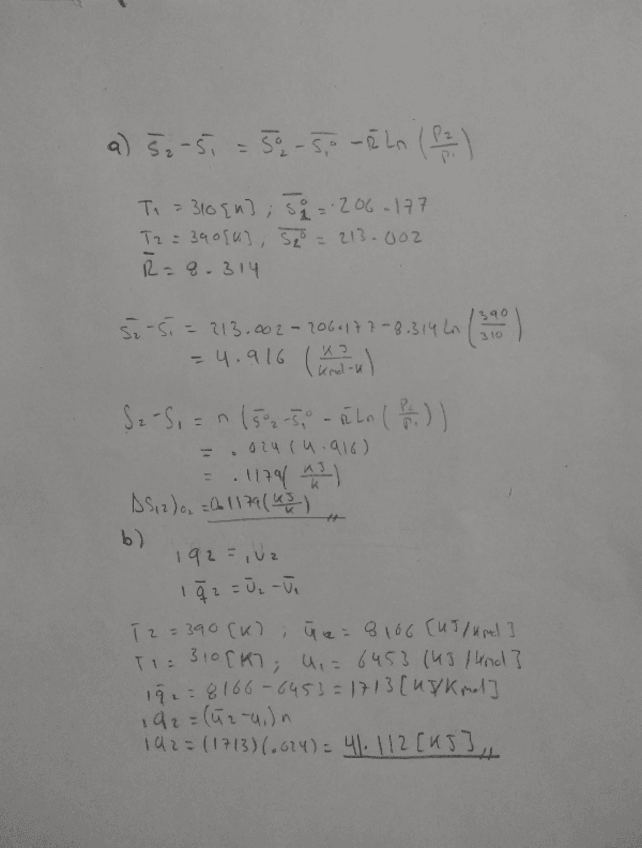 a) S̄₂-S̄₁ = S̄₂° - S̄₁° - R̄ Ln (P₂/P₁)
T₁ = 310 [K] ; S̄₁° = 206.177
T₂ = 390 [K] , S̄₂° = 213.002
R̄ = 8.314
S̄₂-S̄₁ = 213.002 - 206.177 - 8.314 Ln (390/310)
= 4.916 (KJ/Kmol-K)
S₂-S₁ = n (S̄°₂-S̄₁° - R̄ Ln (P₂/P₁))
= .024 (4.916)
= .1179( KJ/K )
ΔS₁₂)O₂ = 0.1179( KJ/K )
b)
₁q₂ = ₁U₂
₁q̄₂ = Ū₂ - Ū₁
T₂ = 390 [K] ; ū₂ = 8166 [KJ/Kmol]
T₁ = 310 [K] ; u₁ = 6453 [KJ/Kmol]
₁q̄₂ = 8166 - 6453 = 1713 [KJ/Kmol]
₁q₂ = (ū₂-u₁)n
₁q₂ = (1713)(.024) = 41.112 [KJ]